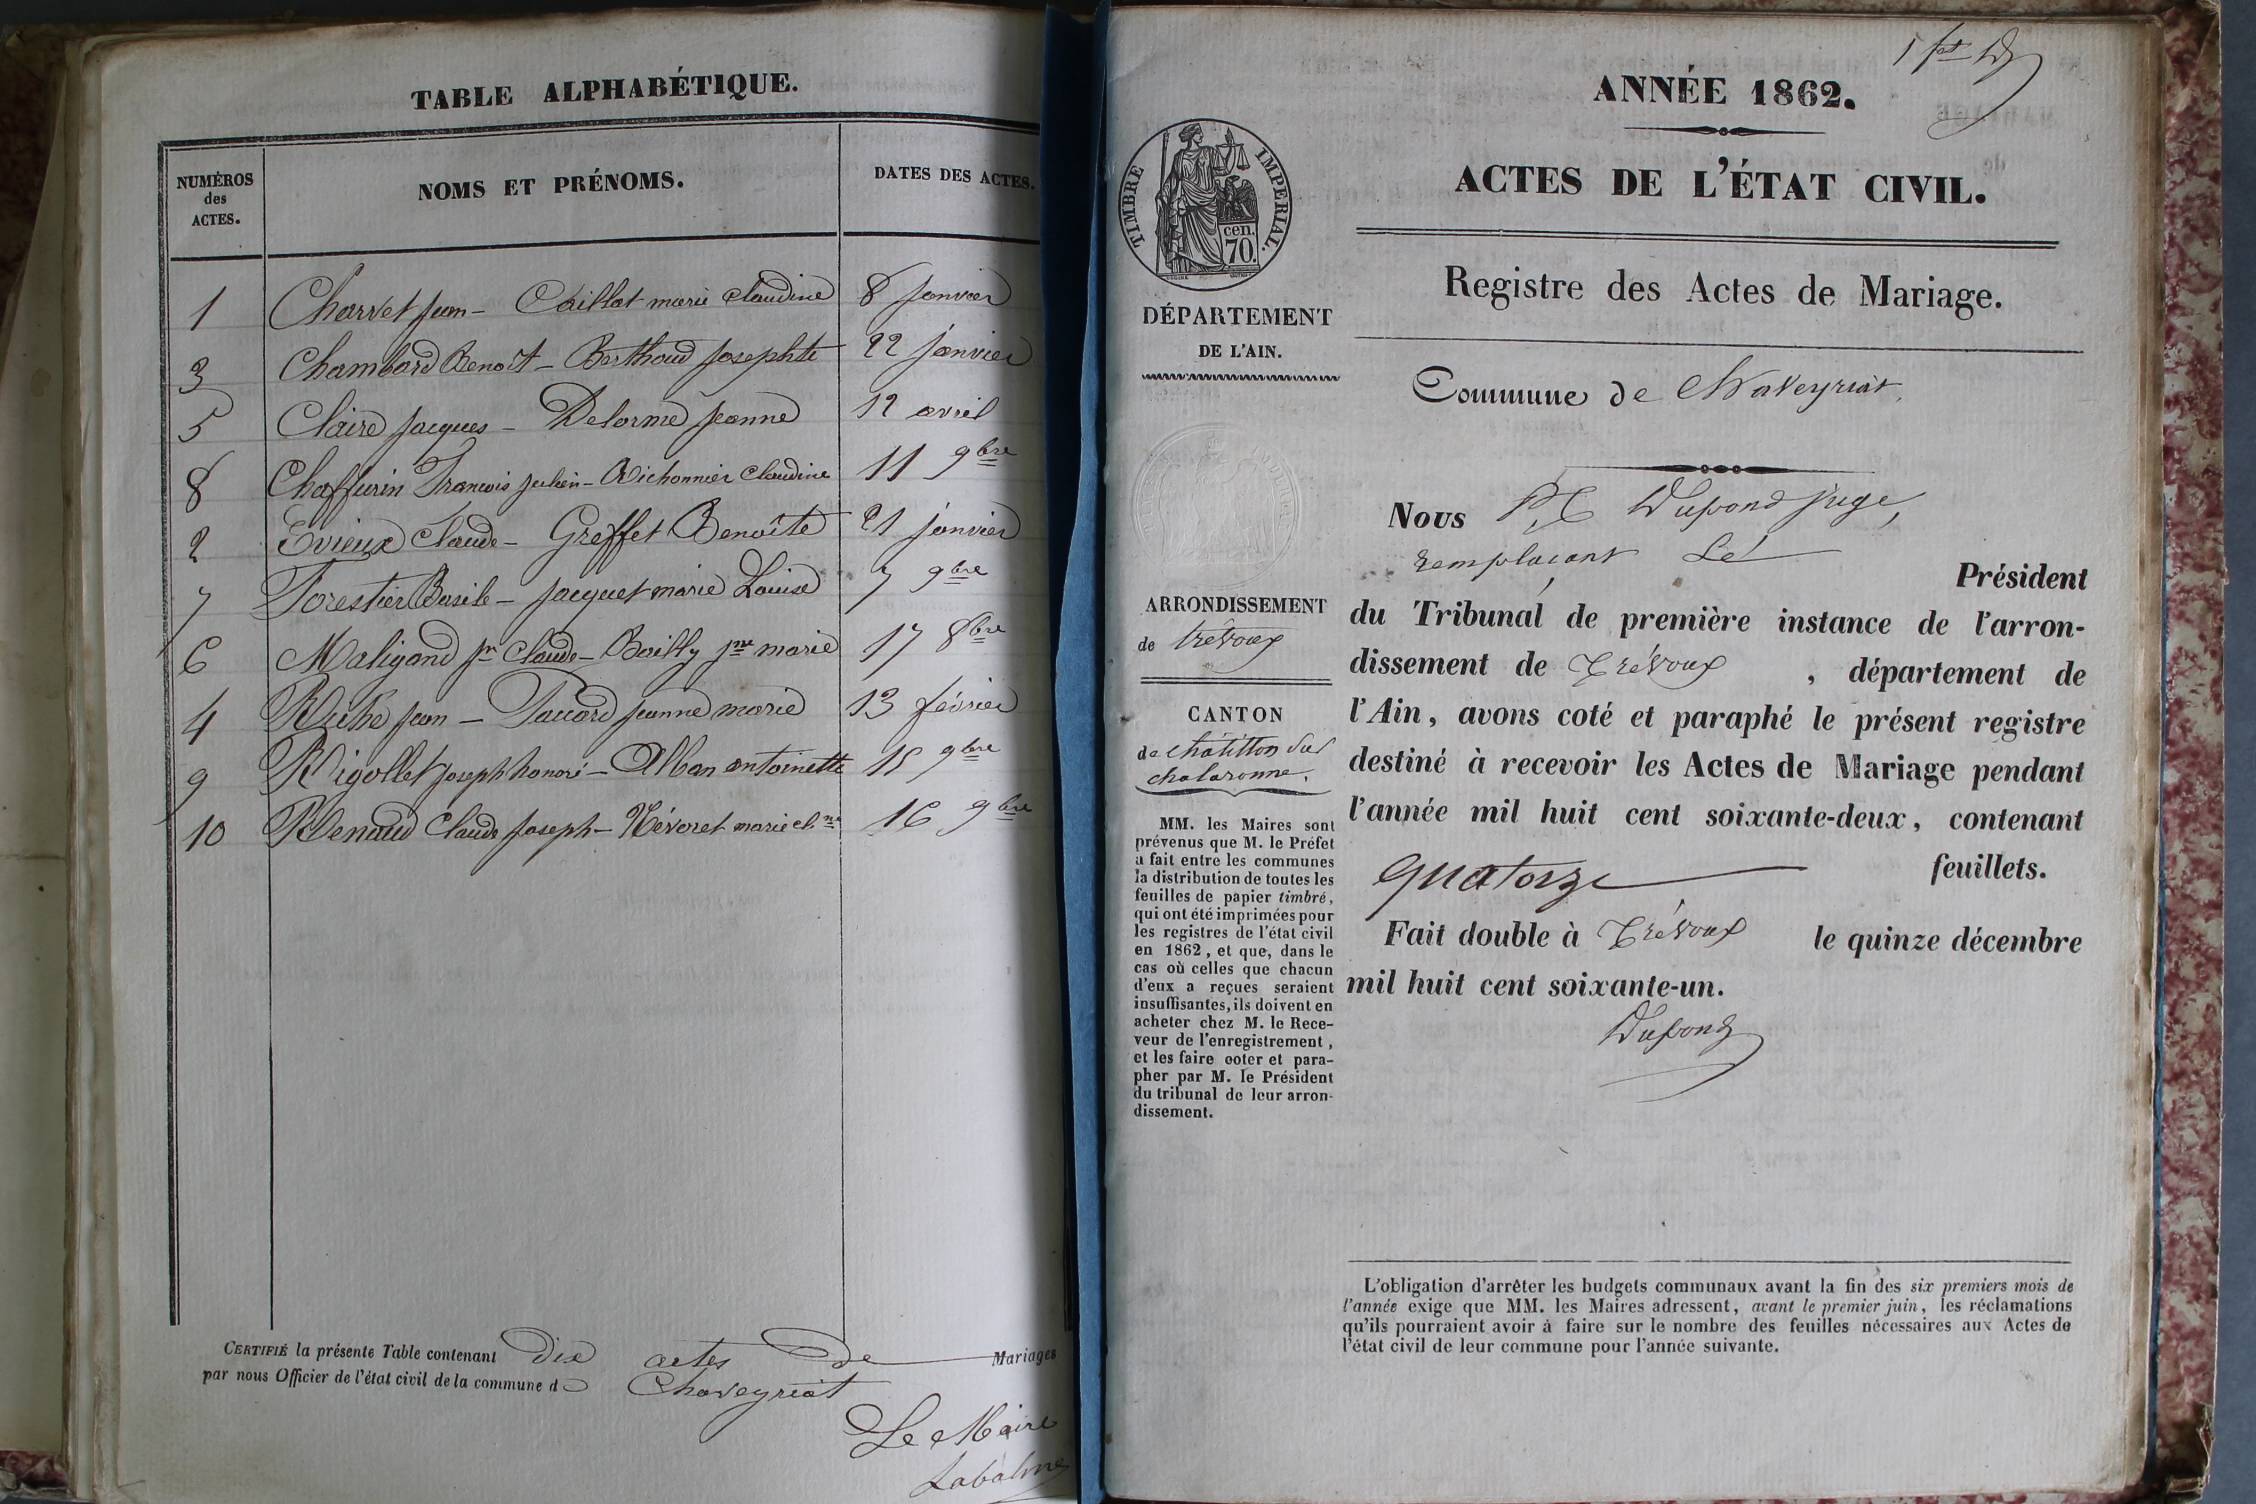 TABLE ALPHABÉTIQUE.
NUMÉROS des ACTES. NOMS ET PRÉNOMS. DATES DES ACTES.
1 Charvet jean - Caillat marie claudine 8 janvier
3 Chambard Benoit - Berthoud josephte 22 janvier
5 Claire jacques - Delorme jeanne 12 avril
8 Chaffurin Francois julien - Michonnier claudine 11 9bre
2 Evieux Claude - Greffet Benoîte 21 janvier
7 Forestier Basile - jacquet marie Louise 7 9bre
6 Maligand jn Claude - Bailly jne marie 17 8bre
4 Ruhe jean - Paccard jeanne marie 13 février
9 Rigollet joseph honoré - Alban antoinette 15 9bre
10 Renaud Claude joseph - Névoret marie clne 16 9bre
CERTIFIÉ la présente Table contenant dix actes de Mariages
par nous Officier de l'état civil de la commune de Chaveyriat
Le Maire
Labalme
1 fet D
ANNÉE 1862.
ACTES DE L'ÉTAT CIVIL.
Registre des Actes de Mariage.
TIMBRE IMPERIAL.
cen.
70.
DÉPARTEMENT
DE L'AIN.
ARRONDISSEMENT
de trévoux
CANTON
de châtillon sur
chalaronne.
MM. les Maires sont
prévenus que M. le Préfet
a fait entre les communes
la distribution de toutes les
feuilles de papier timbré,
qui ont été imprimées pour
les registres de l'état civil
en 1862, et que, dans le
cas où celles que chacun
d'eux a reçues seraient
insuffisantes, ils doivent en
acheter chez M. le Rece-
veur de l'enregistrement,
et les faire coter et para-
pher par M. le Président
du tribunal de leur arron-
dissement.
Commune de Chaveyriat.
Nous Dupond juge,
remplacant Le Président
du Tribunal de première instance de l'arron-
dissement de Trévoux, département de
l'Ain, avons coté et paraphé le présent registre
destiné à recevoir les Actes de Mariage pendant
l'année mil huit cent soixante-deux, contenant
quatorze feuillets.
Fait double à Trévoux le quinze décembre
mil huit cent soixante-un.
Dupond
L'obligation d'arrêter les budgets communaux avant la fin des six premiers mois de
l'année exige que MM. les Maires adressent, avant le premier juin, les réclamations
qu'ils pourraient avoir à faire sur le nombre des feuilles nécessaires aux Actes de
l'état civil de leur commune pour l'année suivante.